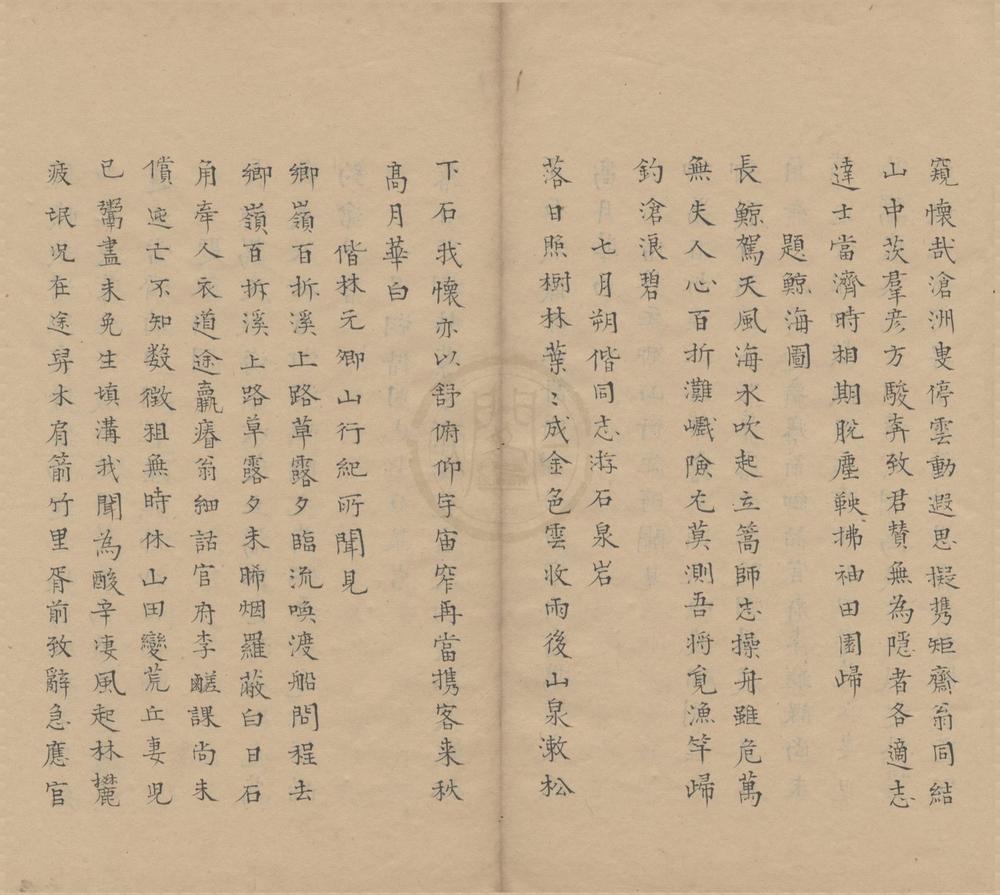 窺懷哉滄洲叟停雲動遐思擬携矩齋翁同結
山中茨羣彦方駿奔致君贊無為隱者各適志
達士當濟時相期脫塵鞅拂袖田園歸
題鯨海圖
長鯨駕天風海水吹起立篙師志操舟雖危萬
無失人心百折灘巇險尤莫測吾將覓漁竿歸
釣滄浪碧
七月朔偕同志游石泉岩
落日照樹林葉〻成金色雲收雨後山泉漱松
下石我懷亦以舒俯仰宇宙窄再當携客来秋
高月華白
偕林元卿山行紀所聞見
鄉嶺百折溪上路草露夕臨流喚渡船問程去
鄉嶺百折溪上路草露夕未晞烟羅蔽白日石
角牽人衣道途羸瘠翁細話官府李鹺課尚未
償逃亡不知数徵租無時休山田變荒丘妻児
已鬻盡未免生填溝我聞為酸辛凄風起林麓
疲氓况在途舁木肩箭竹里胥前致辭急應官